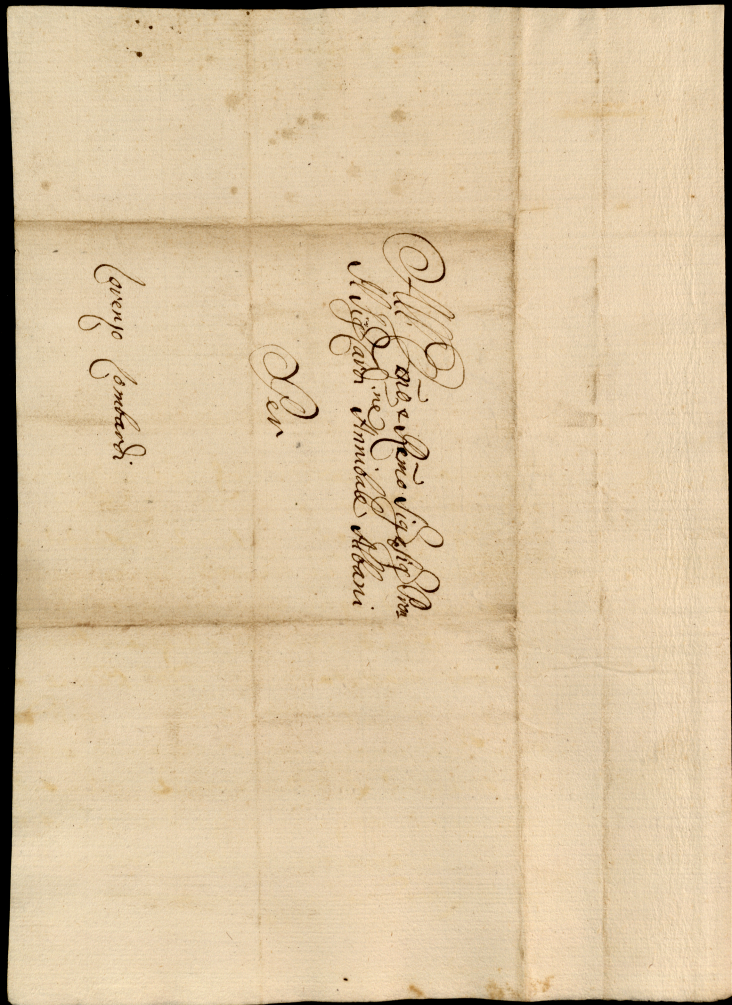 All' Emo͞ e Remo͞ Sigr͞ Sig Pron
Il Sig Card.ne Annibale Albani
Per
Lorenzo Lombardi